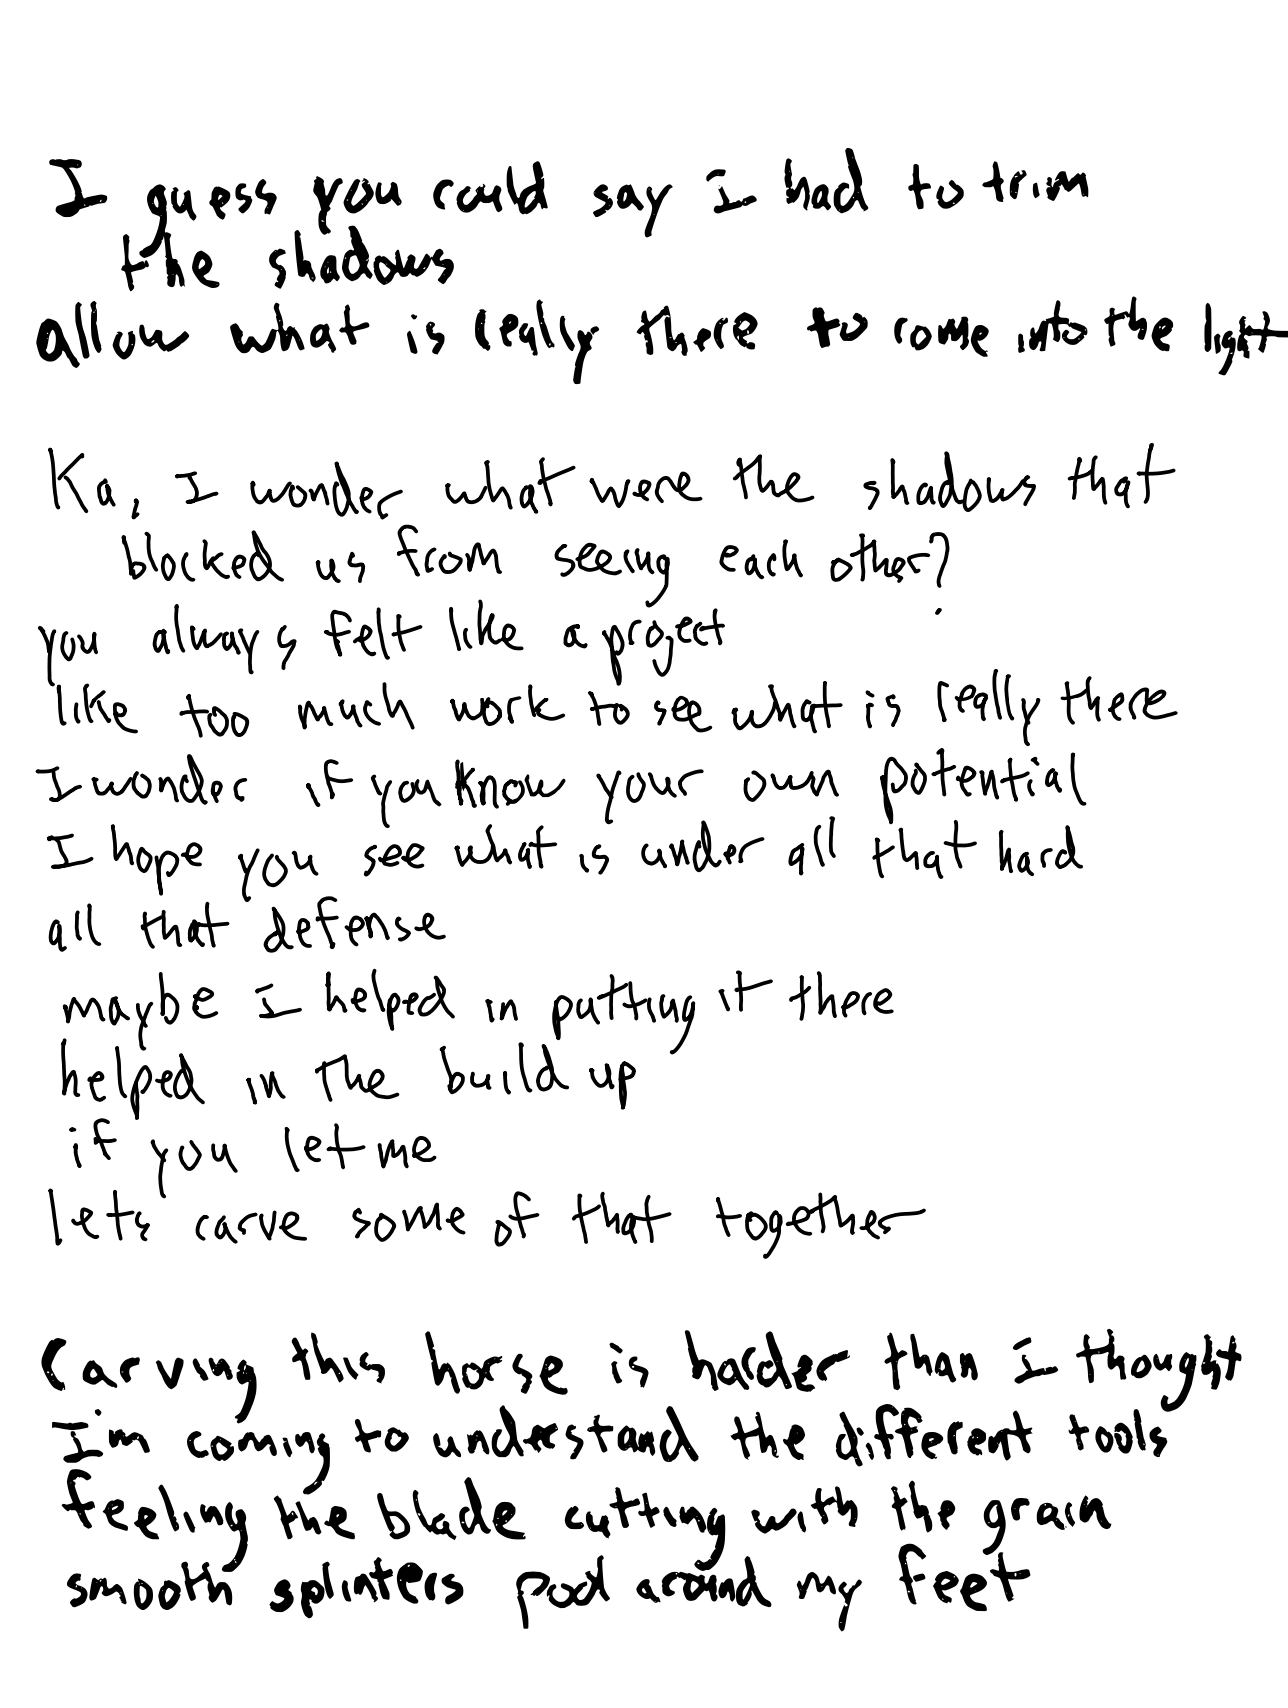 I guess you could say I had to trim
the shadows
allow what is really there to come into the light
Ka, I wonder what were the shadows that
blocked us from seeing each other?
you always felt like a project
like too much work to see what is really there
I wonder if you know your own potential
I hope you see what is under all that hard
all that defense
maybe I helped in putting it there
helped in the build up
if you let me
lets carve some of that together
Carving this horse is harder than I thought
I'm coming to understand the different tools
feeling the blade cutting with the grain
smooth splinters pool around my feet